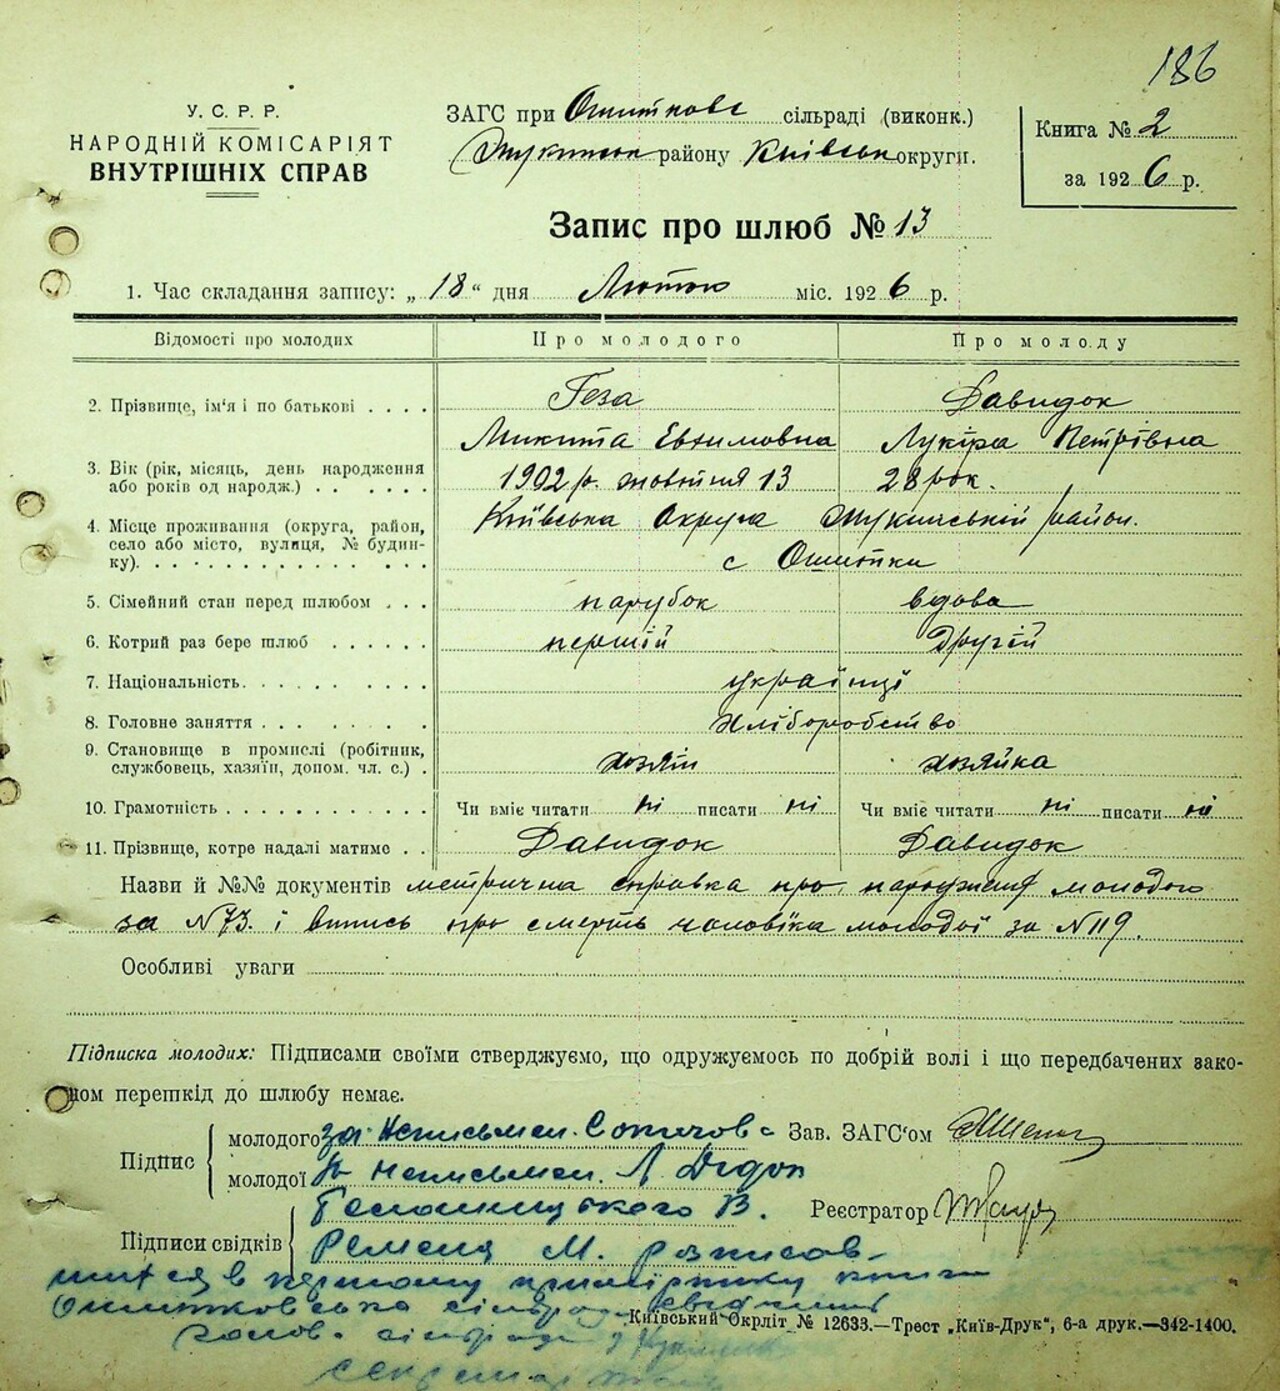 186
У. С. Р. Р.
НАРОДНІЙ КОМІСАРІЯТ
ВНУТРІШНІХ СПРАВ
ЗАГС при Ошитковс сільраді (виконк.)
району Київськ округи.
Книга № 2
за 1926 р.
Запис про шлюб № 13
1. Час складання запису: „18“ дня Лютого міс. 1926 р.
Відомості про молодих Про молодого Про молоду
2. Прізвище, ім'я і по батькові . . . . Геза Давидок
Микита Евхимовна Лукіра Петрівна
3. Вік (рік, місяць, день народження
або років од народж.) . . . . . . 1902 р. жовтня 13 28 рок.
4. Місце проживання (округа, район,
село або місто, вулиця, № будин-
ку). . . . . . . . . . . . . . . Київська Округа Жукинській район.
с Ошитки
5. Сімейний стан перед шлюбом . . . парубок вдова
6. Котрий раз бере шлюб . . . . . . першій Другій
7. Національність. . . . . . . . . . українці
8. Головне заняття . . . . . . . . . хліборобство
9. Становище в промислі (робітник,
службовець, хазяїн, допом. чл. с.) . хозяін хозяйка
10. Грамотність . . . . . . . . . . . Чи вміє читати ні писати ні Чи вміє читати ні писати ні
11. Прізвище, котре надалі матиме . . Давидок Давидок
Назви й №№ документів метрична справка про молодого
за N 73. і випись про смерть чоловіка молодої за N 119.
Особливі уваги
Підписка молодих: Підписами своїми стверджуємо, що одружуємось по добрій волі і що передбачених зако-
ном перешкід до шлюбу немає.
Підпис
молодого за неписьмен. Зав. ЗАГС'ом
молодої неписьмен.
Підписи свідків В. Реєстратор
М. розписов-
в першому примірнику книги
Ошитковська
голов.
Київський Окрліт № 12633.—Трест „Київ-Друк“, 6-а друк.—342-1400.